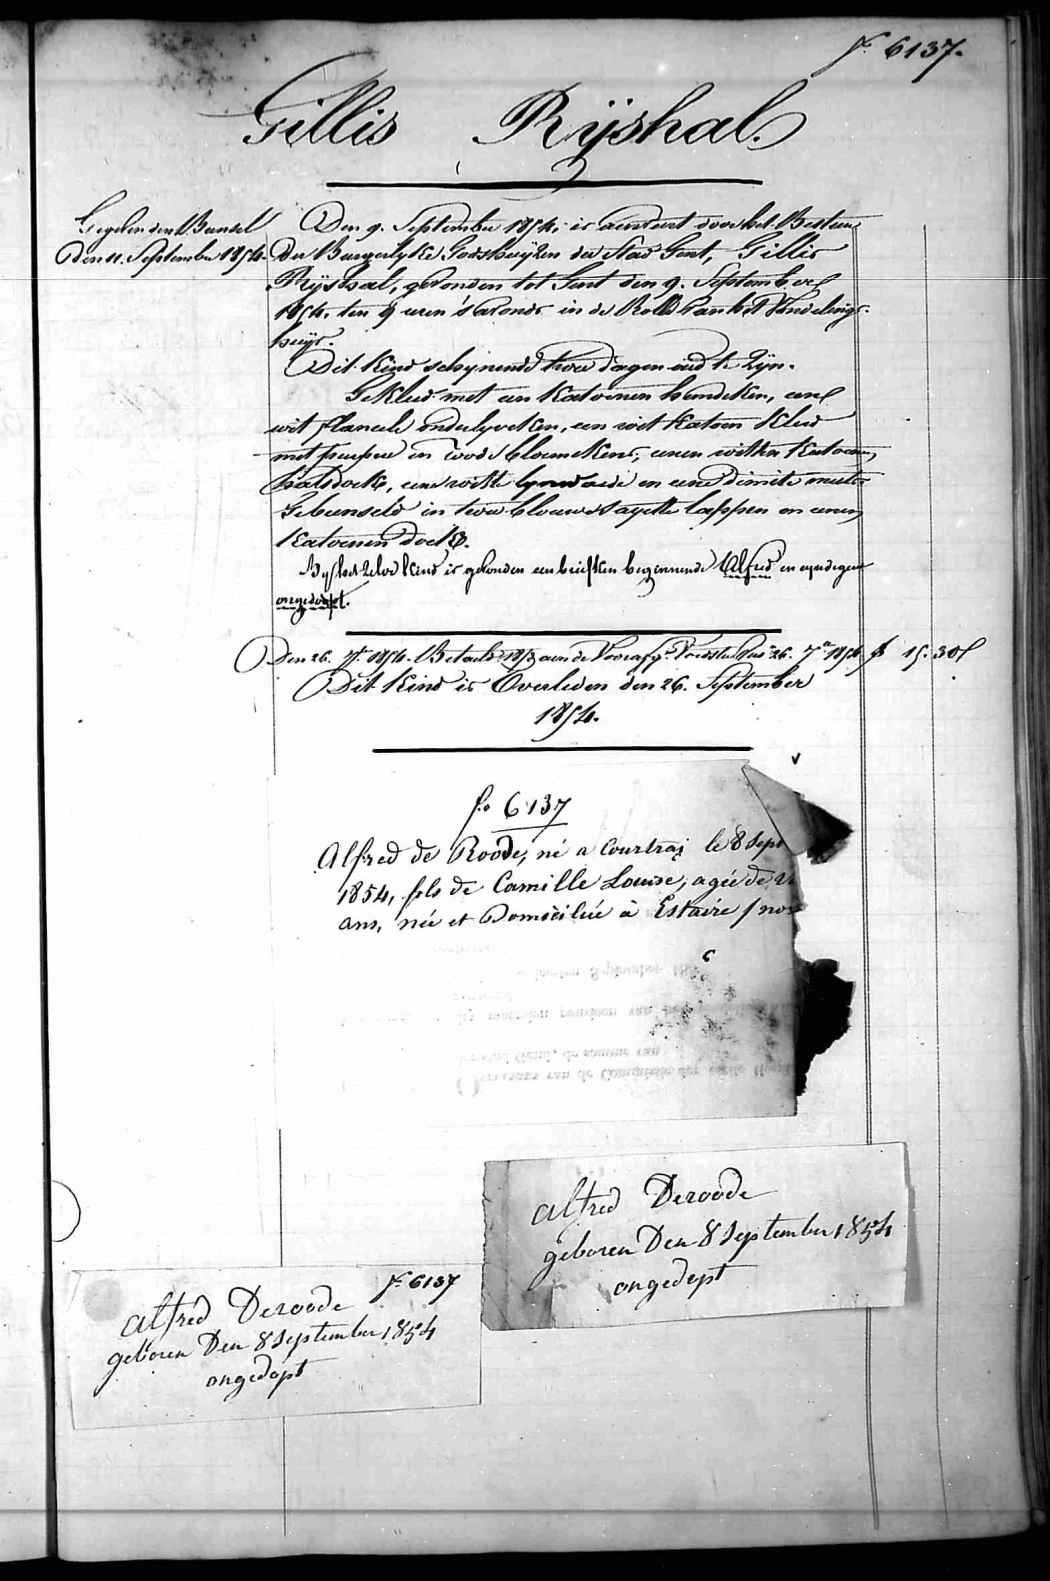 fo 6137.
Gillis Rijshal.
Gegeven den Bunsel
Den 11. September 1854.
Den 9. September 1854, is door het Bestuur
der Burgerlyke Godshuyzen der Stad Gent, Gillis
Rijshal, gevonden tot Gent den 9. September
1854, ten 9 uren 's avonds in de Rolle van het Vondelings-
huys.
Dit Kind schynende twee dagen oud te Zyn.
Gekleed met een Katoenen hemdeken, een
wit flanele onderlyveken, een wit Katoen Kleed
met purpere en roode bloemekens, eenen witten Katoenen
halsdoek, eene witte en eene dimite muts
Gebunseld in twee blauwe sayette lappen en eenen
Katoenen doek.
By het Zelve kind is gevonden een briefken beginnende Alfred en eyndigende
ongedoopt.
Den 26. 7r 1854. Betaald aan de Voedster 26. 7r 1854 f 15.30
Dit Kind is Overleden den 26. September
1854.
fo 6137
Alfred de Roode, né a Courtrai le 8 Sept
1854, fils de Camille Louise, agée de
ans, née et Domiciliée à Estaire / nor
alfred Deroode
geboren Den 8 September 1854
ongedopt
fo 6137
alfred Deroode
geboren Den 8 September 1854
ongedopt